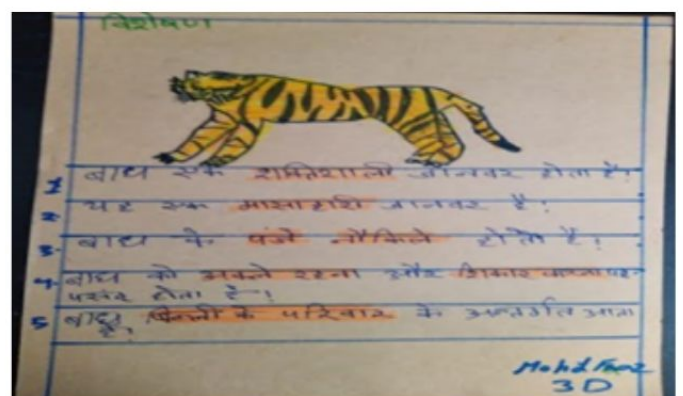 विशेषण
1 बाघ एक शक्तिशाली जानवर होता है।
2 यह एक मासाहारी जानवर है।
3. बाघ के पंजे नौकिले होते है।
4. बाघ को अकले रहना और शिकार करना
पसंद होता है।
5 बाघ बिल्ली के परिवार के अन्तर्गत आता
है।
Mohd Faaz
3D